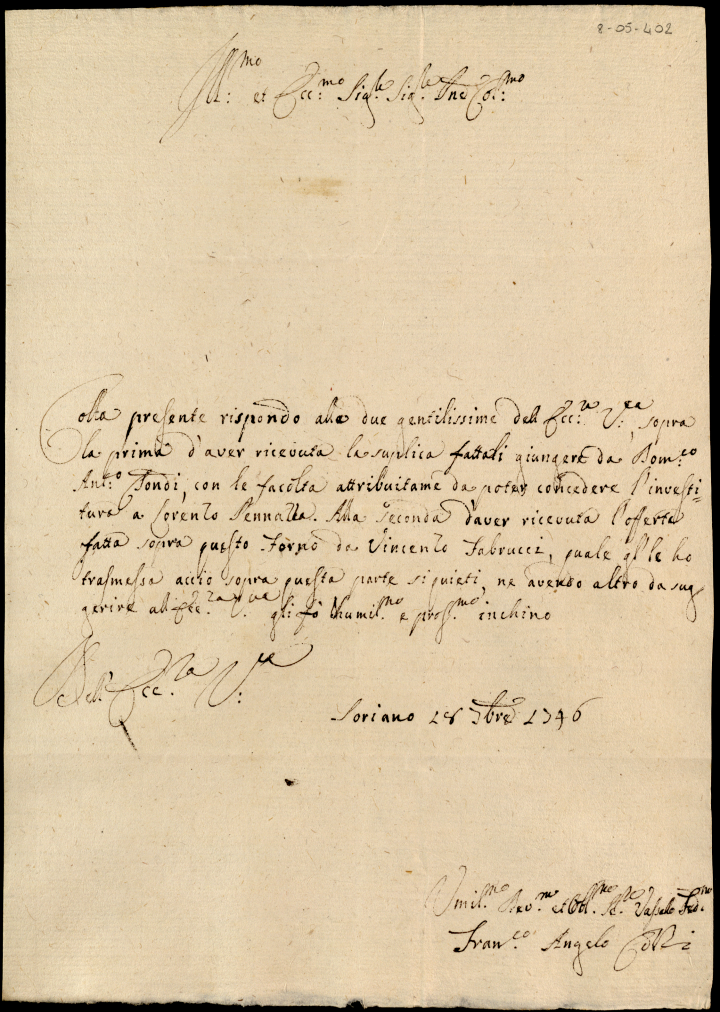 8-05-402
Ill:mo et Ecc:mo Sig:re Sig:re Pne Col:mo
Colla presente rispondo alle due gentilissime dell Ecc:za V:ra, sopra
la prima d'aver ricevuta la suplica fattali giungere da Dom:co
Ant:o Fondi, con le facoltà attribuitame da poter concedere l'investi-
tura a Lorenzo Pennazza. Alla seconda d'aver ricevuta l'offerta
fatta sopra questo Forno da Vincenzo Fabrucci, quale gl' le ho
trasmessa acciò sopra questa parte si quieti, ne avendo altro da sug
gerire all Ecc:za V:ra gli fò humil:mo e prof:mo inchino
Dell Ecc:za V:ra
Soriano 28 7bre 1746
Umil:mo Dev:mo et Obl:mo Vassallo Fed:mo
Fran:co Angelo